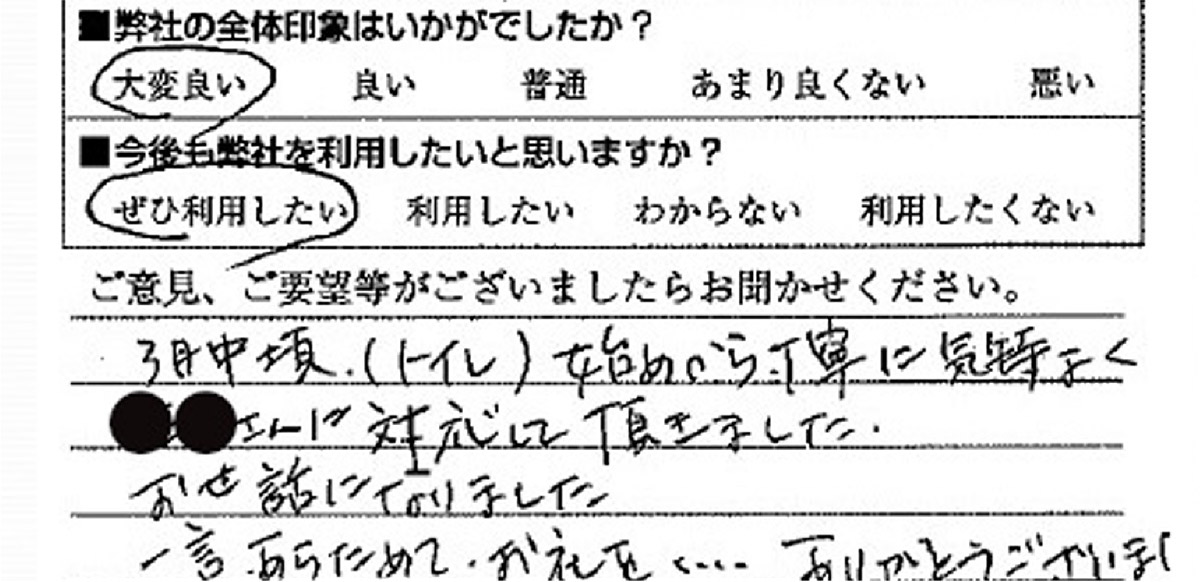 ■弊社の全体印象はいかがでしたか？
大変良い 良い 普通 あまり良くない 悪い
■今後も弊社を利用したいと思いますか？
ぜひ利用したい 利用したい わからない 利用したくない
ご意見、ご要望等がございましたらお聞かせください。
3月中頃.(トイレ)始めから丁寧に気持よく
さんに対応して頂きました.
おせ話になりました
一言.あらためて.お礼を・・・・ ありがとうございまし